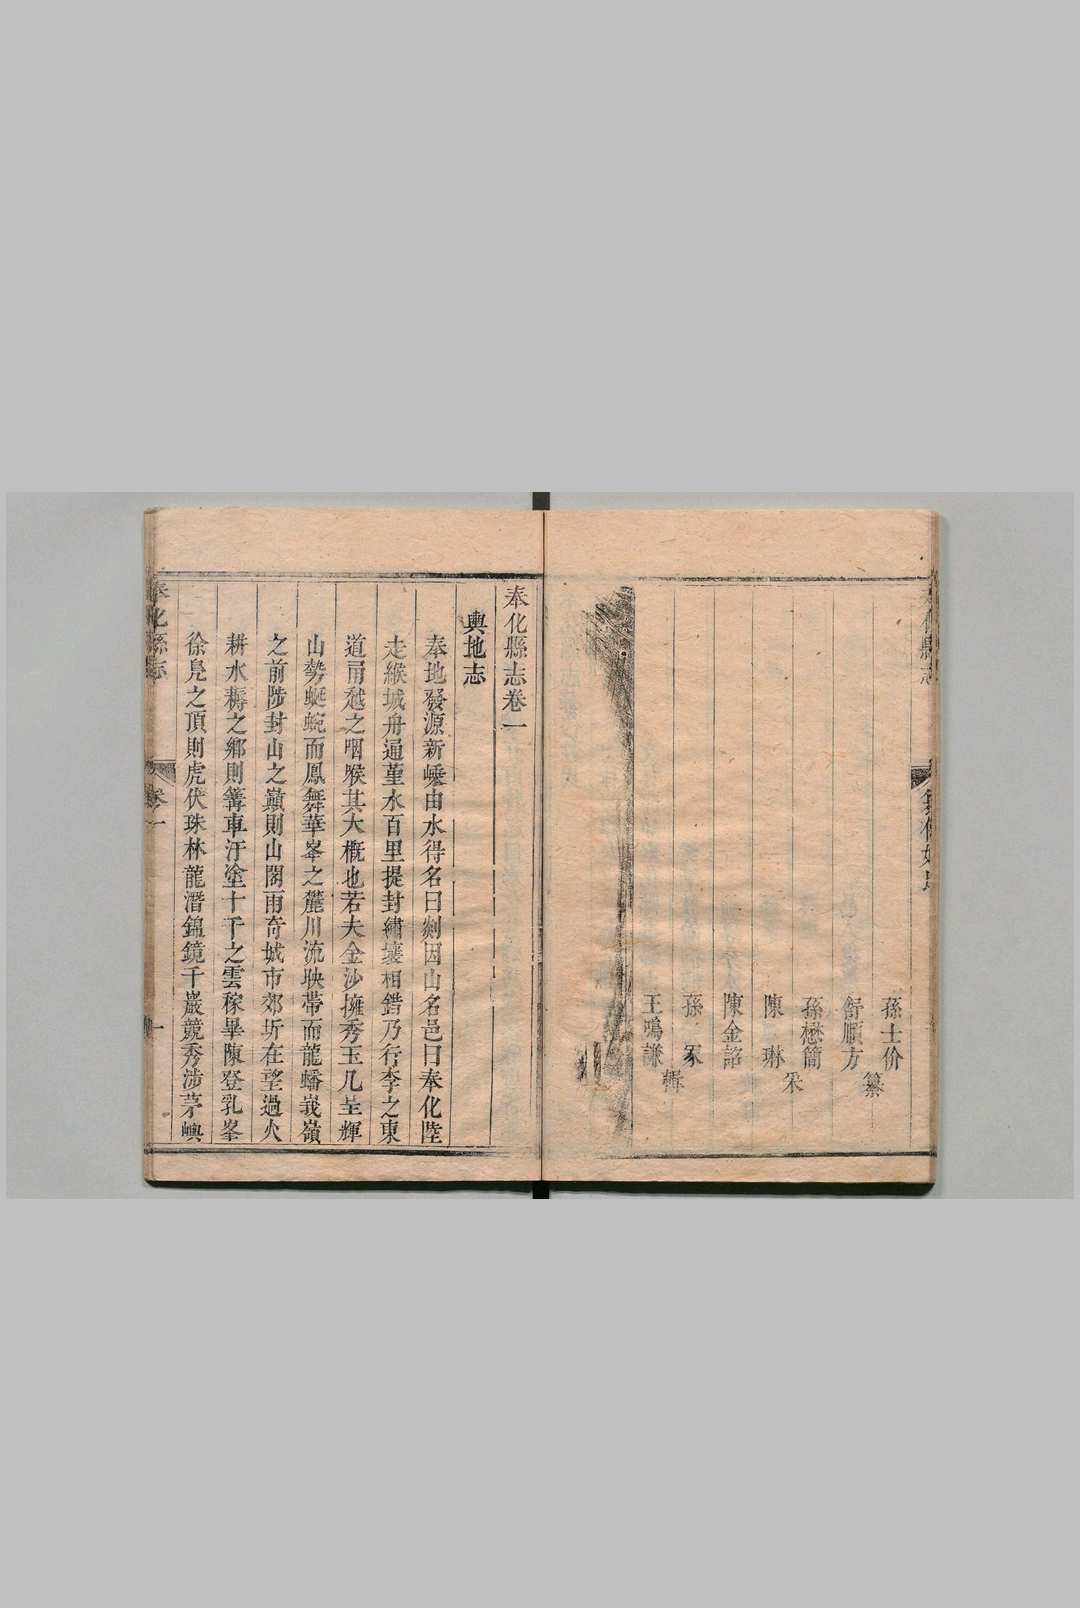 孫士价
舒順方
纂
孫懋簡
采
陳　琳
陳金詔
孫　冢
輯
王鳴謙
奉化縣志卷一
輿地志
奉地發源新嵊由水得名曰剡因山名邑曰奉化陸
走緱城舟通菫水百里提封繡壤相錯乃行李之東
道甬越之咽喉其大槪也若夫金沙擁秀玉几呈輝
山勢蜒蜿而鳳舞華峯之麓川流映帶而龍蟠峩嶺
之前陟封山之巔則山閣雨奇城市郊圻在望過火
耕水耨之鄉則篝車汙塗十千之雲稼畢陳登乳峯
徐鳧之頂則虎伏珠林龍潛錦鏡千巖競秀涉茅嶼
奉化縣志
卷一
一